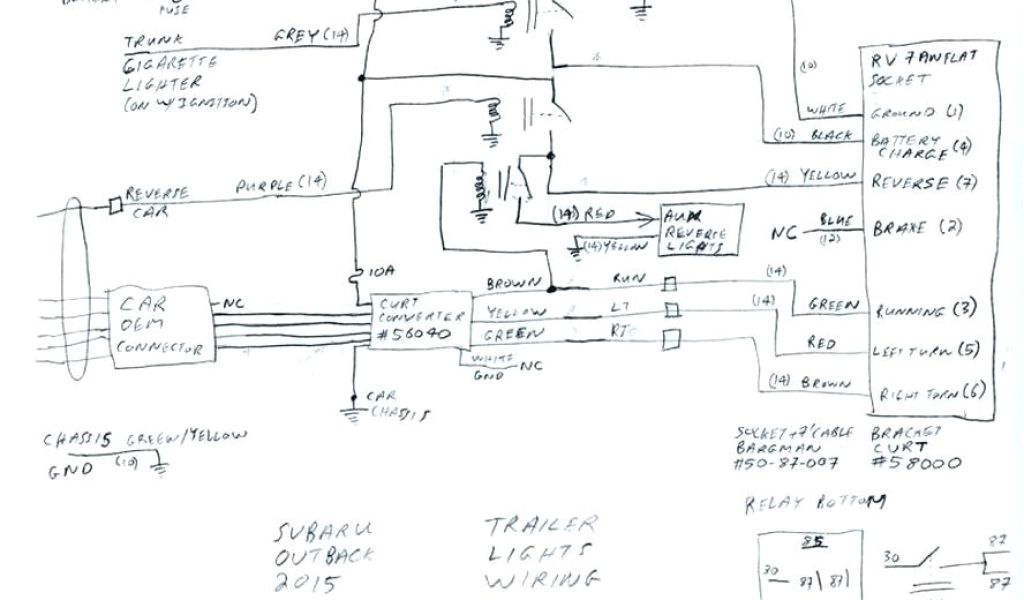 FUSE
TRUNK GREY (14)
CIGARETTE
LIGHTER
(ON W/IGNITION)
RV 7 PIN FLAT
SOCKET
(10)
WHITE GROUND (1)
(10) BLACK BATTERY
CHARGE (4)
(14) YELLOW REVERSE (7)
REVERSE PURPLE (14)
CAR
(14) RED AUX
REVERSE
LIGHTS
(14) YELLOW
NC BLUE BRAKE (2)
(12)
10A
BROWN RUN (14)
CAR
OEM
CONNECTOR
NC
CURT
CONVERTER
#56040
YELLOW LT (14)
GREEN RT
GREEN RUNNING (3)
RED LEFT TURN (5)
WHITE NC
GND
(14) BROWN RIGHT TURN (6)
CAR
CHASSIS
CHASSIS GREEN/YELLOW
GND (10)
SOCKET + 7' CABLE
BARGMAN
#50-87-007
BRACKET
CURT
#58000
RELAY BOTTOM
SUBARU
OUTBACK
2015
TRAILER
LIGHTS
WIRING
85
30
87
30
87
87